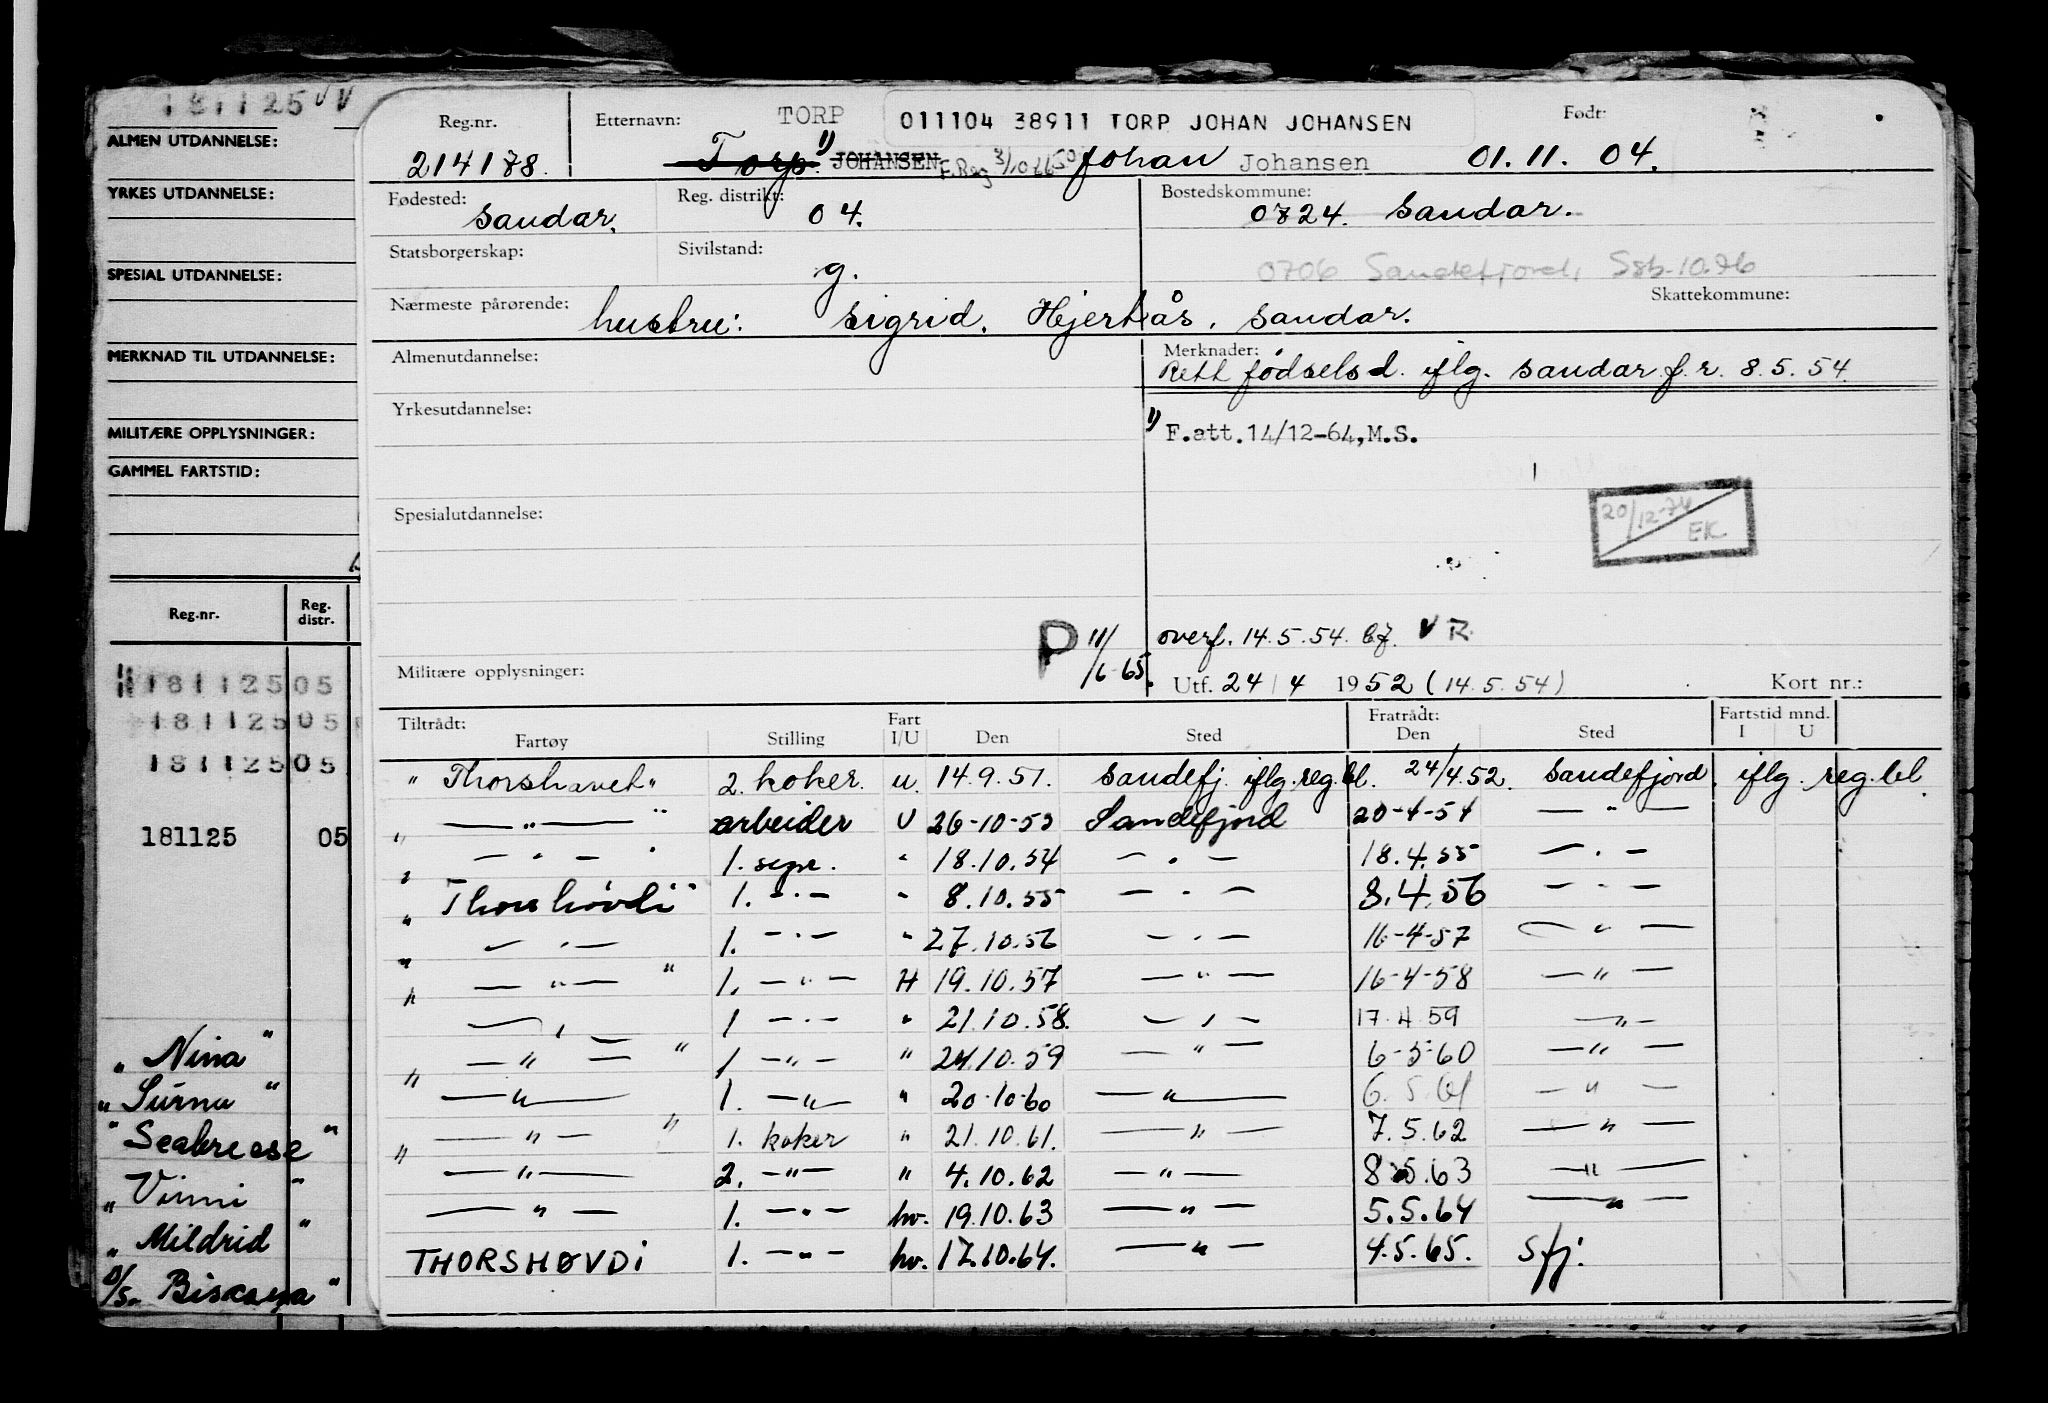 181125 V V
ALMEN UTDANNELSE:
YRKES UTDANNELSE:
SPESIAL UTDANNELSE:
MERKNAD TIL UTDANNELSE:
MILITÆRE OPPLYSNINGER:
GAMMEL FARTSTID:
Reg.nr. Reg. distr.
181125 05
181125 05
181125 05
181125 05
" Nina "
" Surna "
" Seabreese "
" Vinni "
" Mildrid "
D/S. Biscaya "
Reg.nr. Etternavn: TORP 011104 38911 TORP JOHAN JOHANSEN Født:
214178. Torp 1) JOHANSEN Johan Johansen 01.11.04.
Fødested: Reg. distrikt: Bostedskommune:
Sandar. 04. 0724. Sandar.
Statsborgerskap: Sivilstand:
g. 0706 Sandefjord, Ssb-10.76
Nærmeste pårørende: Skattekommune:
hustru: Sigrid. Hjertås. Sandar.
Almenutdannelse: Merknader:
Rett fødselsd. iflg. Sandar f.r. 8.5.54.
Yrkesutdannelse:
1) F.att.14/12-64,M.S.
20/12-74 EK
Spesialutdannelse:
P 11/6-65. overf. 14.5.54. VR.
Militære opplysninger: Utf. 24/4 1952 (14.5.54) Kort nr.:
Tiltrådt: Fart Fratrådt: Fartstid mnd.
Fartøy Stilling I/U Den Sted Den Sted I U
" Thorshavet " 2. koker. u. 14.9.51. Sandefj. iflg.reg.bl. 24/4.52. Sandefjord, iflg. reg.bl.
" — " — " arbeider U 26-10-53 Sandefjord 20-4-54 — " —
" — " — " 1. sepr. " 18.10.54 — " — 18.4.55 — " —
" Thorshövdi " 1. — " — " 8.10.55 — " — 8.4.56 — " —
" — " — 1. — " — " 27.10.56 — " — 16-4-57 — " —
" — " — " 1. — " — H 19.10.57 — " — 16-4-58 — " —
" — " — 1 — " — " 21.10.58. — " — 17.4.59 — " —
— " — " 1 — " — " 24.10.59 — " — 6-5-60 — " —
" — " — 1. — " — " 20-10-60 — " — 6.5.61 — " —
— " — " 1. koker " 21.10.61. — " — 7.5.62 — " —
" — " — 2. — " — " 4.10.62 — " — 8.5.63 — " —
— " — 1. — " — hv. 19.10.63 — " — 5.5.64 — " —
THORSHØVDI 1. — " — hv. 17.10.64. — " — 4.5.65. Sfj.